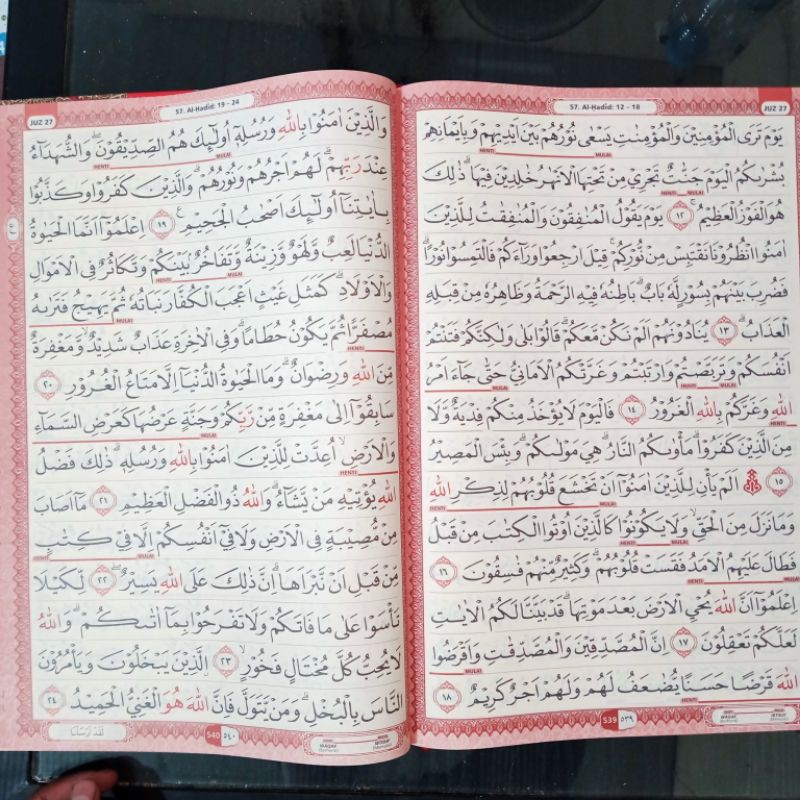 57. Al-Ḥadīd: 12 - 18
JUZ 27
يَوْمَ تَرَى الْمُؤْمِنِيْنَ وَالْمُؤْمِنٰتِ يَسْعٰى نُوْرُهُمْ بَيْنَ اَيْدِيْهِمْ وَبِاَيْمَانِهِمْ
بُشْرٰىكُمُ الْيَوْمَ جَنّٰتٌ تَجْرِيْ مِنْ تَحْتِهَا الْاَنْهٰرُ خٰلِدِيْنَ فِيْهَاۗ ذٰلِكَ
هُوَ الْفَوْزُ الْعَظِيْمُۚ ١٢ يَوْمَ يَقُوْلُ الْمُنٰفِقُوْنَ وَالْمُنٰفِقٰتُ لِلَّذِيْنَ
اٰمَنُوا انْظُرُوْنَا نَقْتَبِسْ مِنْ نُّوْرِكُمْۚ قِيْلَ ارْجِعُوْا وَرَاۤءَكُمْ فَالْتَمِسُوْا نُوْرًاۗ
فَضُرِبَ بَيْنَهُمْ بِسُوْرٍ لَّهٗ بَابٌۗ بَاطِنُهٗ فِيْهِ الرَّحْمَةُ وَظَاهِرُهٗ مِنْ قِبَلِهِ
الْعَذَابُۗ ١٣ يُنَادُوْنَهُمْ اَلَمْ نَكُنْ مَّعَكُمْۗ قَالُوْا بَلٰى وَلٰكِنَّكُمْ فَتَنْتُمْ
اَنْفُسَكُمْ وَتَرَبَّصْتُمْ وَارْتَبْتُمْ وَغَرَّتْكُمُ الْاَمَانِيُّ حَتّٰى جَاۤءَ اَمْرُ
اللّٰهِ وَغَرَّكُمْ بِاللّٰهِ الْغَرُوْرُ ١٤ فَالْيَوْمَ لَا يُؤْخَذُ مِنْكُمْ فِدْيَةٌ وَّلَا
مِنَ الَّذِيْنَ كَفَرُوْاۗ مَأْوٰىكُمُ النَّارُۗ هِيَ مَوْلٰىكُمْۗ وَبِئْسَ الْمَصِيْرُ
١٥ اَلَمْ يَأْنِ لِلَّذِيْنَ اٰمَنُوْٓا اَنْ تَخْشَعَ قُلُوْبُهُمْ لِذِكْرِ اللّٰهِ
وَمَا نَزَلَ مِنَ الْحَقِّۙ وَلَا يَكُوْنُوْا كَالَّذِيْنَ اُوْتُوا الْكِتٰبَ مِنْ قَبْلُ
فَطَالَ عَلَيْهِمُ الْاَمَدُ فَقَسَتْ قُلُوْبُهُمْۗ وَكَثِيْرٌ مِّنْهُمْ فٰسِقُوْنَ ١٦
اِعْلَمُوْٓا اَنَّ اللّٰهَ يُحْيِ الْاَرْضَ بَعْدَ مَوْتِهَاۗ قَدْ بَيَّنَّا لَكُمُ الْاٰيٰتِ
لَعَلَّكُمْ تَعْقِلُوْنَ ١٧ اِنَّ الْمُصَّدِّقِيْنَ وَالْمُصَّدِّقٰتِ وَاَقْرَضُوا
اللّٰهَ قَرْضًا حَسَنًا يُّضٰعَفُ لَهُمْ وَلَهُمْ اَجْرٌ كَرِيْمٌ ١٨
539 ٥٣٩
JUZ 27
57. Al-Ḥadīd: 19 - 24
وَالَّذِيْنَ اٰمَنُوْا بِاللّٰهِ وَرُسُلِهٖٓ اُولٰۤىِٕكَ هُمُ الصِّدِّيْقُوْنَۖ وَالشُّهَدَاۤءُ
عِنْدَ رَبِّهِمْۗ لَهُمْ اَجْرُهُمْ وَنُوْرُهُمْۗ وَالَّذِيْنَ كَفَرُوْا وَكَذَّبُوْا
بِاٰيٰتِنَآ اُولٰۤىِٕكَ اَصْحٰبُ الْجَحِيْمِ ١٩ اِعْلَمُوْٓا اَنَّمَا الْحَيٰوةُ
الدُّنْيَا لَعِبٌ وَّلَهْوٌ وَّزِيْنَةٌ وَّتَفَاخُرٌۢ بَيْنَكُمْ وَتَكَاثُرٌ فِى الْاَمْوَالِ
وَالْاَوْلَادِۗ كَمَثَلِ غَيْثٍ اَعْجَبَ الْكُفَّارَ نَبَاتُهٗ ثُمَّ يَهِيْجُ فَتَرٰىهُ
مُصْفَرًّا ثُمَّ يَكُوْنُ حُطَامًاۗ وَفِى الْاٰخِرَةِ عَذَابٌ شَدِيْدٌۙ وَّمَغْفِرَةٌ
مِّنَ اللّٰهِ وَرِضْوَانٌۗ وَمَا الْحَيٰوةُ الدُّنْيَآ اِلَّا مَتَاعُ الْغُرُوْرِ ٢٠
سَابِقُوْٓا اِلٰى مَغْفِرَةٍ مِّنْ رَّبِّكُمْ وَجَنَّةٍ عَرْضُهَا كَعَرْضِ السَّمَاۤءِ
وَالْاَرْضِۙ اُعِدَّتْ لِلَّذِيْنَ اٰمَنُوْا بِاللّٰهِ وَرُسُلِهٖۗ ذٰلِكَ فَضْلُ
اللّٰهِ يُؤْتِيْهِ مَنْ يَّشَاۤءُۗ وَاللّٰهُ ذُو الْفَضْلِ الْعَظِيْمِ ٢١ مَآ اَصَابَ
مِنْ مُّصِيْبَةٍ فِى الْاَرْضِ وَلَا فِيْٓ اَنْفُسِكُمْ اِلَّا فِيْ كِتٰبٍ
مِّنْ قَبْلِ اَنْ نَّبْرَاَهَاۗ اِنَّ ذٰلِكَ عَلَى اللّٰهِ يَسِيْرٌۖ ٢٢ لِّكَيْلَا
تَأْسَوْا عَلٰى مَا فَاتَكُمْ وَلَا تَفْرَحُوْا بِمَآ اٰتٰىكُمْۗ وَاللّٰهُ
لَا يُحِبُّ كُلَّ مُخْتَالٍ فَخُوْرٍۙ ٢٣ الَّذِيْنَ يَبْخَلُوْنَ وَيَأْمُرُوْنَ
النَّاسَ بِالْبُخْلِۗ وَمَنْ يَّتَوَلَّ فَاِنَّ اللّٰهَ هُوَ الْغَنِيُّ الْحَمِيْدُ ٢٤
لَقَدْ اَرْسَلْنَا
540 ٥٤٠